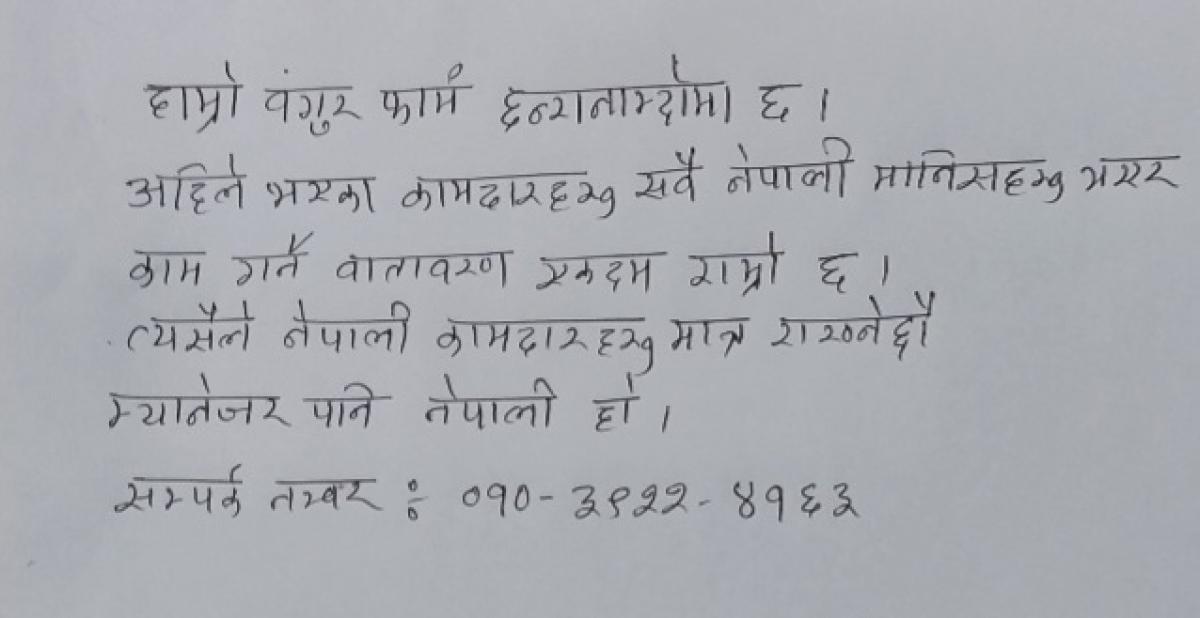 हाम्रो वंगुर फार्म छ ।
अहिले भएका कामदारहरु सवै नेपाली मानिसहरु भएर
काम गर्ने वातावरण एकदम राम्रो छ ।
त्यसैले नेपाली कामदारहरु मात्र राख्नेछौ
म्यानेजर पनि नेपाली हो ।
सम्पर्क नम्वर : ०१०-३९२२-४१६३